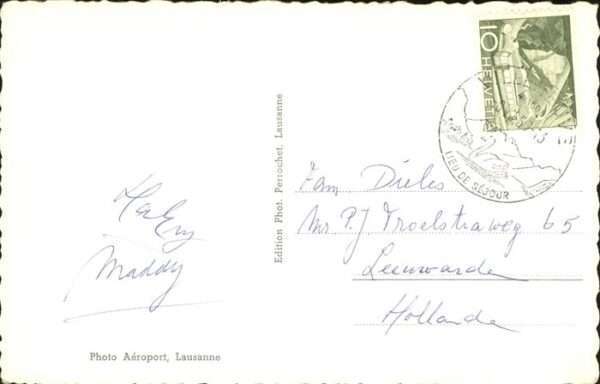 10 HELVETIA
LIEU DE SÉJOUR
Edition Phot. Perrochet, Lausanne
Fam Dieles
Mr. P.J Troelstraweg 65
Leeuwarden
Hollande
Maddy
Photo Aéroport, Lausanne